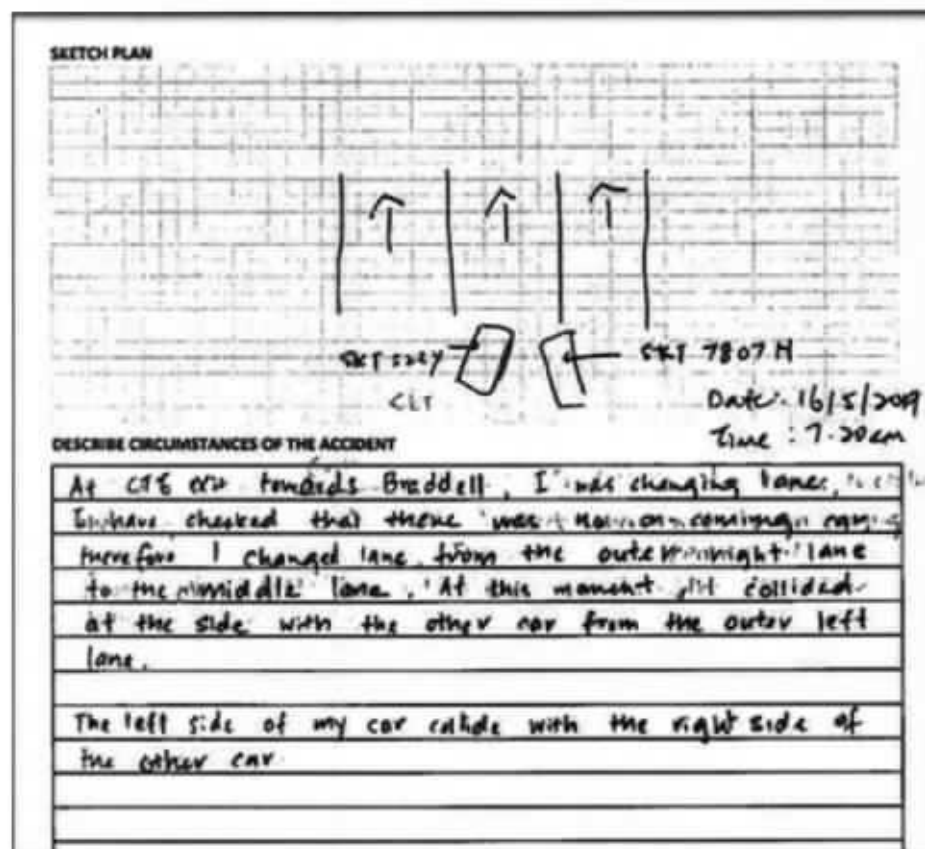 SKETCH PLAN
SKT 7807 H
CLT
Date: 16/5/2019
Time: 7.20am
DESCRIBE CIRCUMSTANCES OF THE ACCIDENT
At CTE exit towards Braddell, I was changing lanes,
I have checked that there was no on coming
therefore I changed lane from the outer right lane
to the middle lane. At this moment it collided
at the side with the other car from the outer left
lane.
The left side of my car collide with the right side of
the other car